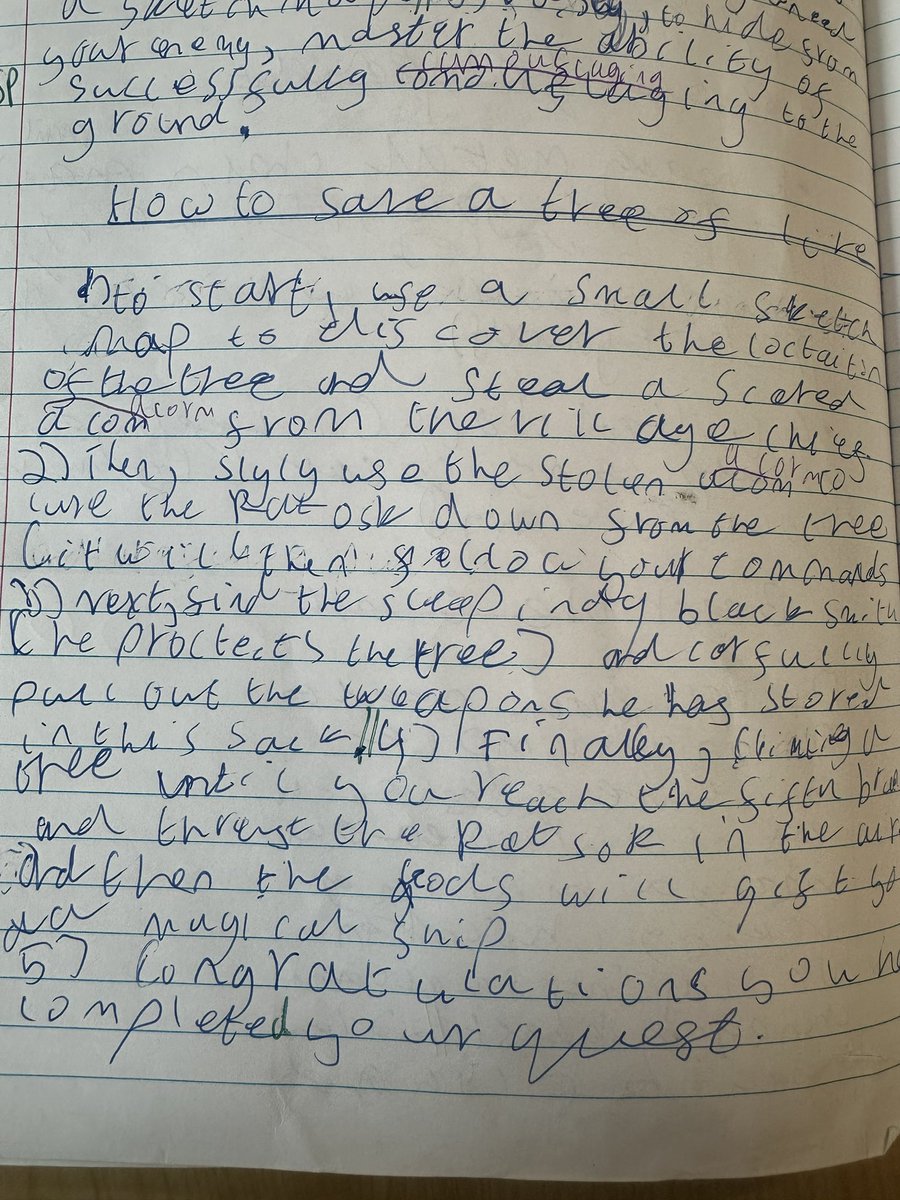 a sketch map to hide from
your enemy, master the ability of
camouflaging
successfully to the
ground.
How to save a tree of life
1) to start, use a small sketch
map to discover the loctaition
of the tree and steal a scared
acorn
acorn from the villager chief
acorn
2) Then, slyly use the stolen acorn to
lure the Ratosk down from the tree
(it will then follow your commands
3) next, find the sleeping blacksmith
(he proctects the tree) and carfully
pull out the weapons he has stored
in this sack 4) Finally, climing a
tree until you reach the fifth
and thrust the Ratsok in the air
and then the gods will gift yo
a magical ship
5) Congratulations you h
completed your quest.